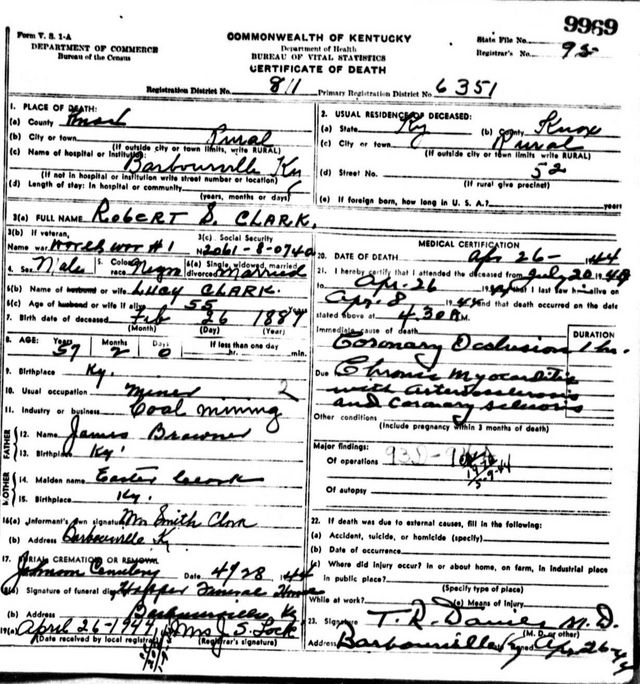 9969
Form V. S. 1-A
DEPARTMENT OF COMMERCE
Bureau of the Census
COMMONWEALTH OF KENTUCKY
Department of Health
BUREAU OF VITAL STATISTICS
CERTIFICATE OF DEATH
State File No.
Registrar's No. 95
Registration District No. 811 Primary Registration District No. 6351
1. PLACE OF DEATH:
(a) County Knox
(b) City or town Rural
(If outside city or town limits, write RURAL)
(c) Name of hospital or institution: Barbourville Ky
(If not in hospital or institution write street number or location)
(d) Length of stay: In hospital or community
(years, months or days)
2. USUAL RESIDENCE OF DECEASED:
(a) State Ky (b) County Knox
(c) City or town Rural
(If outside city or town limits write RURAL)
(d) Street No. 52
(If rural give precinct)
(e) If foreign born, how long in U. S. A.? years
3(a) FULL NAME ROBERT S. CLARK.
3(b) If veteran,
Name war World War #1
3(c) Social Security
No.
4. Sex Male 5. Color or race Negro 6(a) Single, widowed, married, divorced Married
6(b) Name of husband or wife LUCY CLARK.
6(c) Age of husband or wife if alive 55 Years
7. Birth date of deceased Feb 26 1887
(Month) (Day) (Year)
8. AGE: Years 57 Months 2 Days 0 If less than one day
hr. min.
9. Birthplace Ky.
10. Usual occupation Miner 2
11. Industry or business Coal mining
FATHER
12. Name James Browner
13. Birthplace Ky.
MOTHER
14. Maiden name Easter
15. Birthplace Ky.
16(a) Informant's own signature Mrs Smith Clark
(b) Address Barbourville Ky
17. BURIAL, CREMATION OR REMOVAL
Johnson Cemetery Date 4/28 1944
(a) Signature of funeral dir. Hopper Funeral Home
(b) Address Barbourville Ky.
19(a) April 26-1944 Mrs J. S. Lock
(Date received by local registrar) (Registrar's signature)
MEDICAL CERTIFICATION
20. DATE OF DEATH Apr 26- 1944
21. I hereby certify that I attended the deceased from July 20 194
to Apr. 26 1944 that I last saw him alive on
Apr. 8 1944 and that death occurred on the date
stated above at 4:30 A.M.
DURATION
Immediate cause of death
Coronary Occlusion 1 hr.
Due Chronic Myocarditis
with Arteriosclerosis
and Coronary Sclerosis
Other conditions
(Include pregnancy within 3 months of death)
Major findings:
Of operations
Of autopsy
22. If death was due to external causes, fill in the following:
(a) Accident, suicide, or homicide (specify)
(b) Date of occurrence
(c) Where did injury occur? in or about home, on farm, in industrial place
in public place?
(Specify type of place)
While at work? (e) Means of Injury
23. Signature T. R. Davies M.D.
(M. D. or other)
Address Barbourville Ky signed Apr 26 44